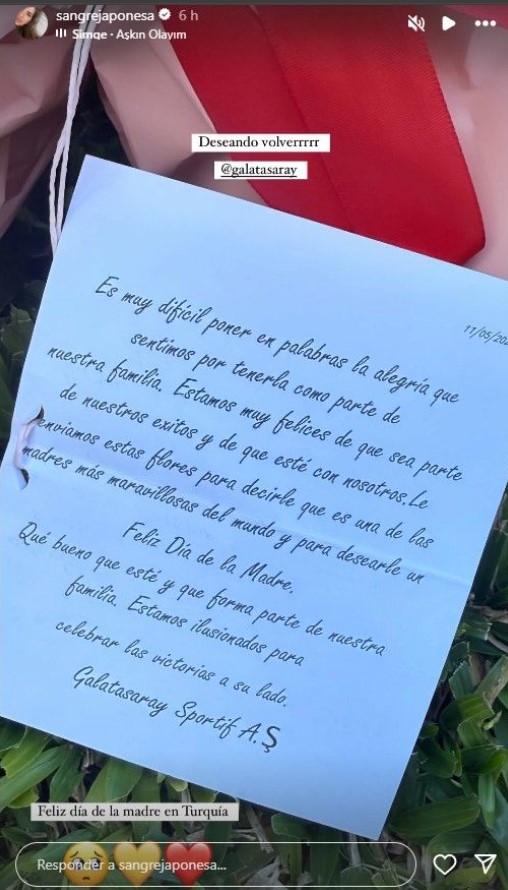 sangrejaponesa 6 h
Simge · Aşkın Olayım
Deseando volverrrrr
@galatasaray
11/05/20
Es muy difícil poner en palabras la alegría que
sentimos por tenerla como parte de
nuestra familia. Estamos muy felices de que sea parte
de nuestros exitos y de que esté con nosotros.Le
enviamos estas flores para decirle que es una de las
madres más maravillosas del mundo y para desearle un
Feliz Día de la Madre.
Qué bueno que esté y que forma parte de nuestra
familia. Estamos ilusionados para
celebrar las victorias a su lado.
Galatasaray Sportif A.Ş
Feliz día de la madre en Turquía
Responder a sangrejaponesa...